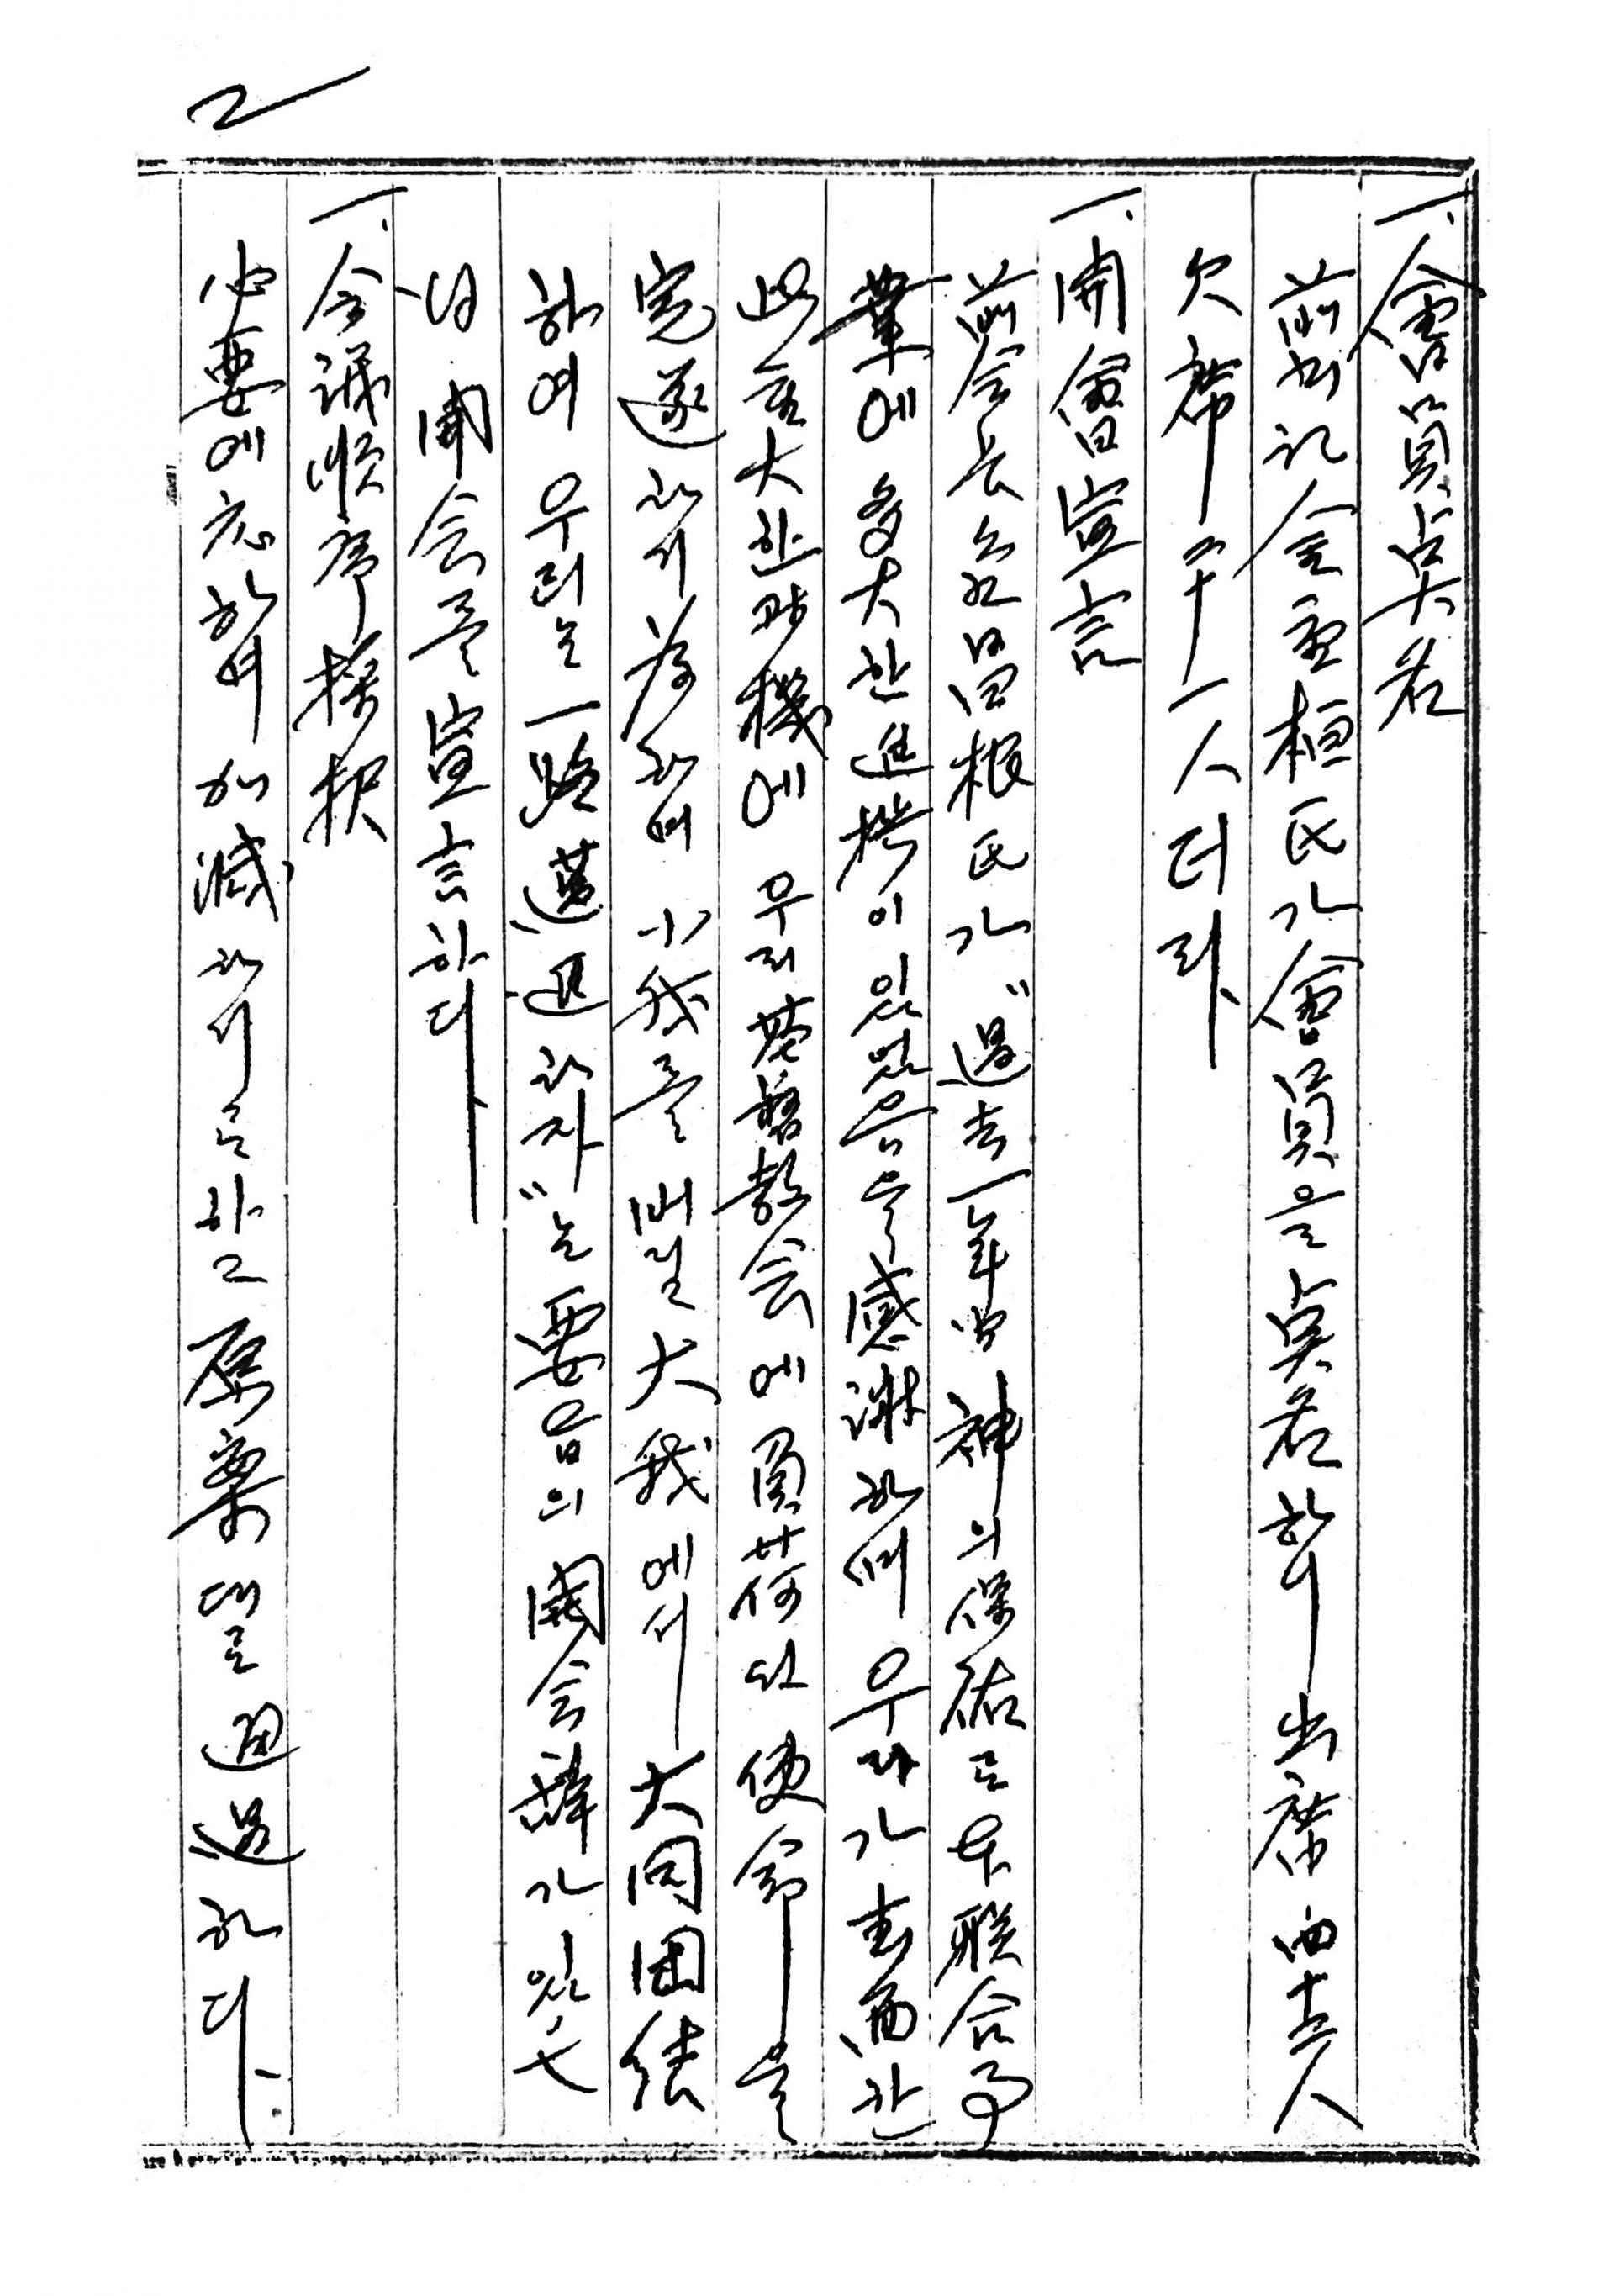 2
一. 會員点名
前書記金重桓氏가 會員을 点名하니 出席 四十五人
欠席 二十一人 더라
一. 開會宣言
前会長 呂根氏가 "過去一年間 神의 保佑로 本联合事
業에 多大한 進捗이 있었음을 感謝하며 우리가 直面한
此重大한 때 機에 우리 基督教会에 負荷된 使命을
完遂하기 為하여 小我를 버린 大我에서 大同団結
하여 우리는 一路邁進하자"는 要旨의 開会辞가 있은
后 開会를 宣言하다
一. 会議順序採択
必要에 応하여 加減하기로 하고 原案대로 通過하다.